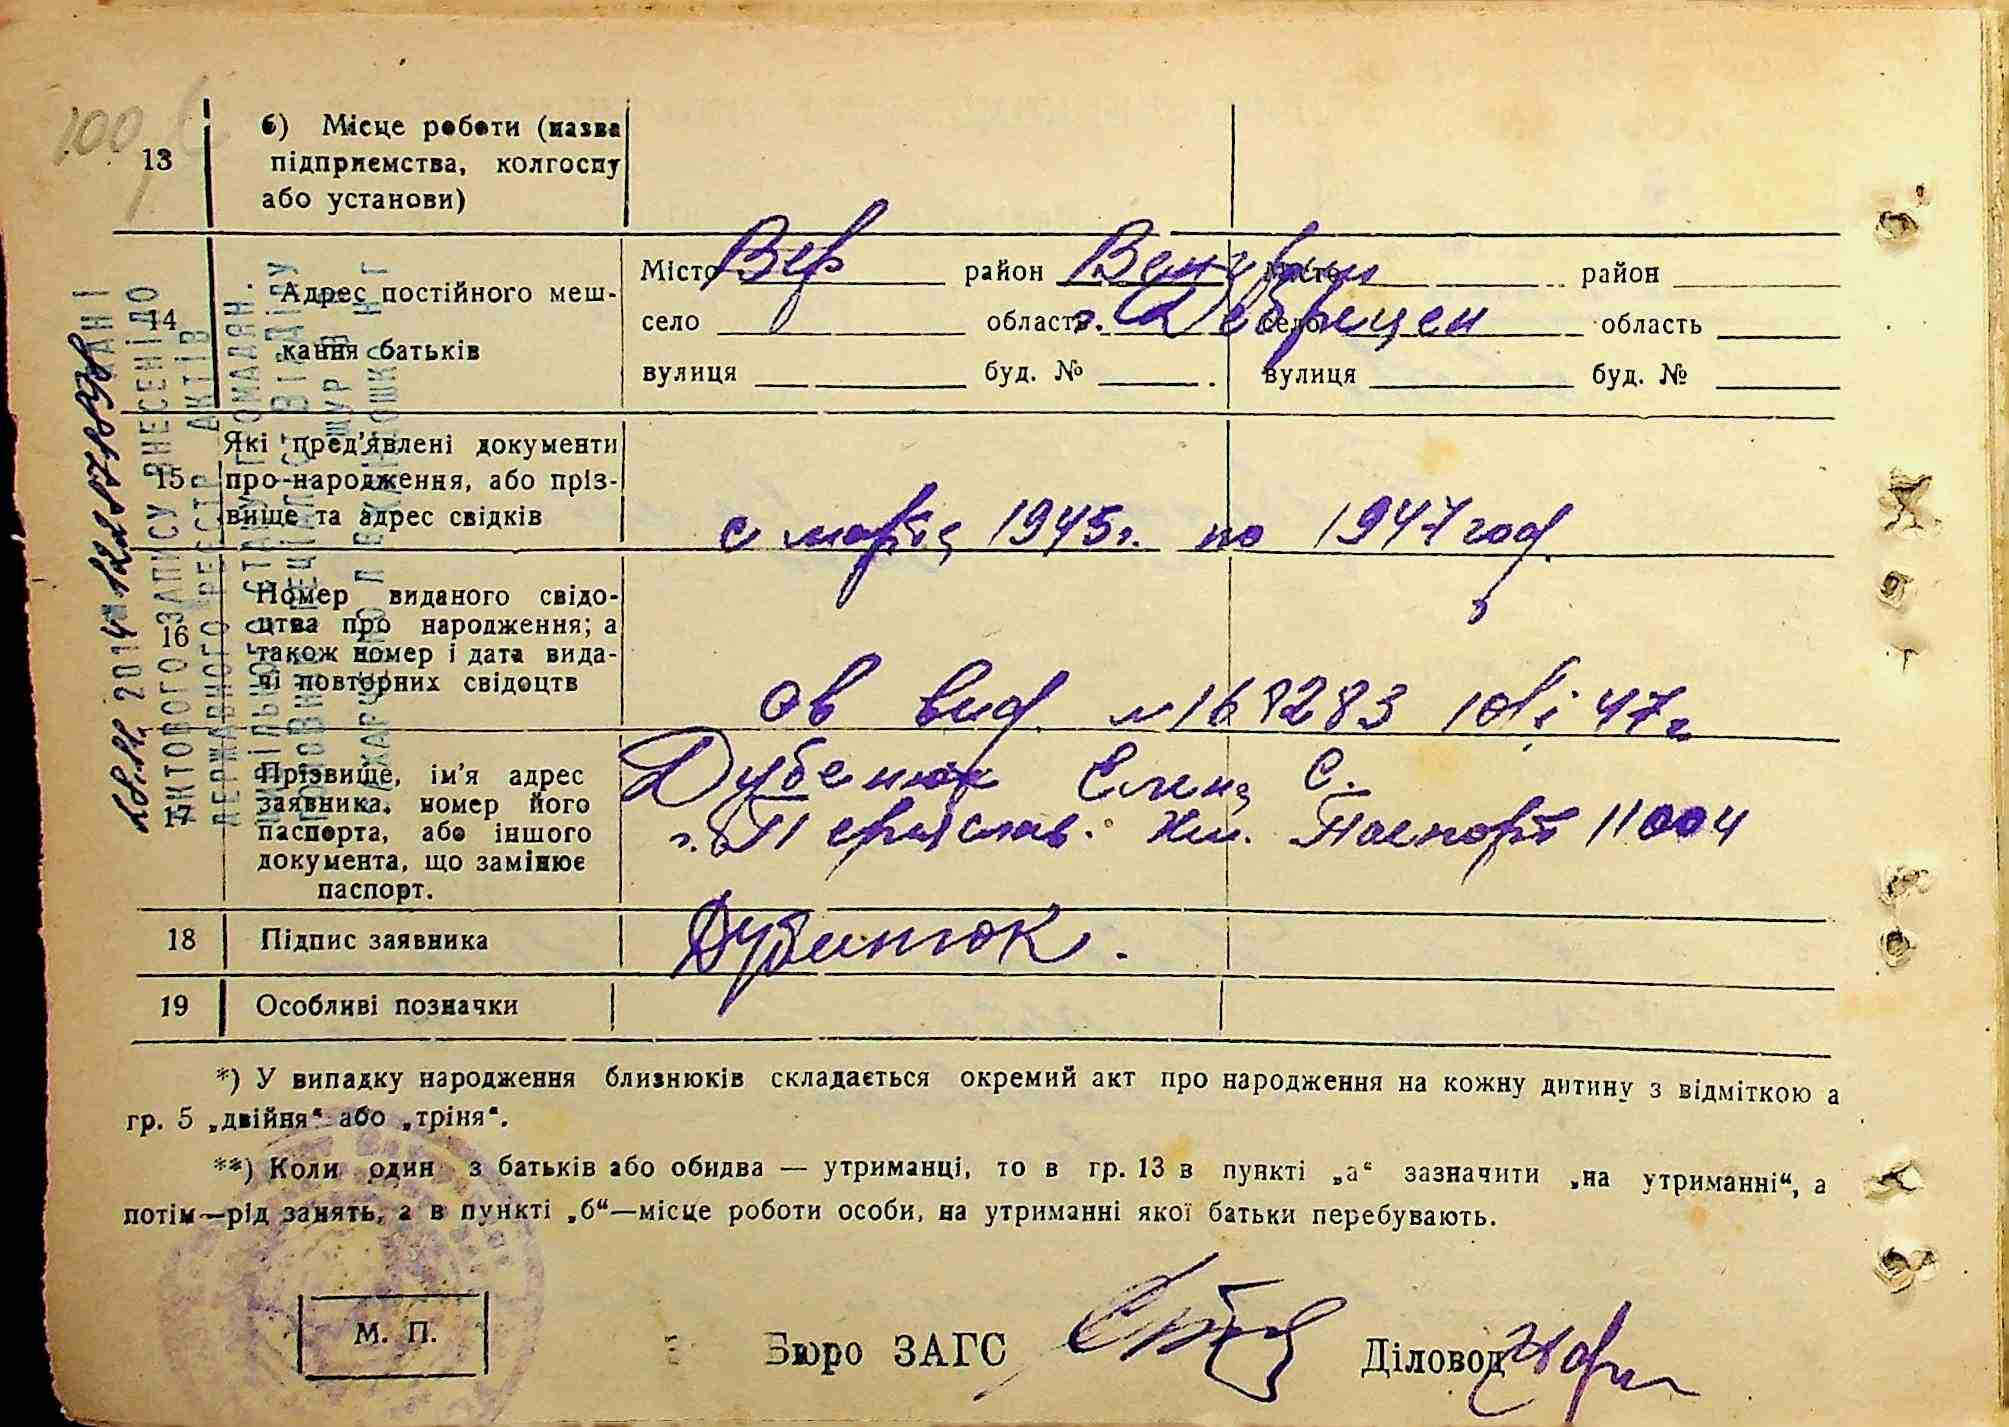 13
б) Місце роботи (назва
підприємства, колгоспу
або установи)
14
Адрес постійного меш-
кання батьків
Місто район Венгрии Місто район
село область г. Дебрецен село область
вулиця буд. № вулиця буд. №
15
Які пред'явлені документи
про народження, або пріз-
вище та адрес свідків
с марта 1945г. по 1947 год
16
Номер виданого свідо-
цтва про народження; а
також номер і дата вида-
чі повторних свідоцтв
св выд N 168283 47г
17
Прізвище, ім'я адрес
заявника, номер його
паспорта, або іншого
документа, що замінює
паспорт.
Дубенюк Елена С.
г. Переяслав. Хм. Паспорт 11004
18 Підпис заявника
19 Особливі позначки
*) У випадку народження близнюків складається окремий акт про народження на кожну дитину з відміткою а
гр. 5 „двійня“ або „тріня“.
**) Коли один з батьків або обидва — утриманці, то в гр. 13 в пункті „а“ зазначити „на утриманні“, а
потім—рід занять, а в пункті „б“—місце роботи особи, на утриманні якої батьки перебувають.
М. П.
Бюро ЗАГС Діловод
2014
АКТОВОГО ЗАПИСУ ВНЕСЕНІ ДО
ДЕРЖАВНОГО РЕЄСТР АКТІВ
ЦИВІЛЬНОГО СТАНУ ГРОМАДЯН.